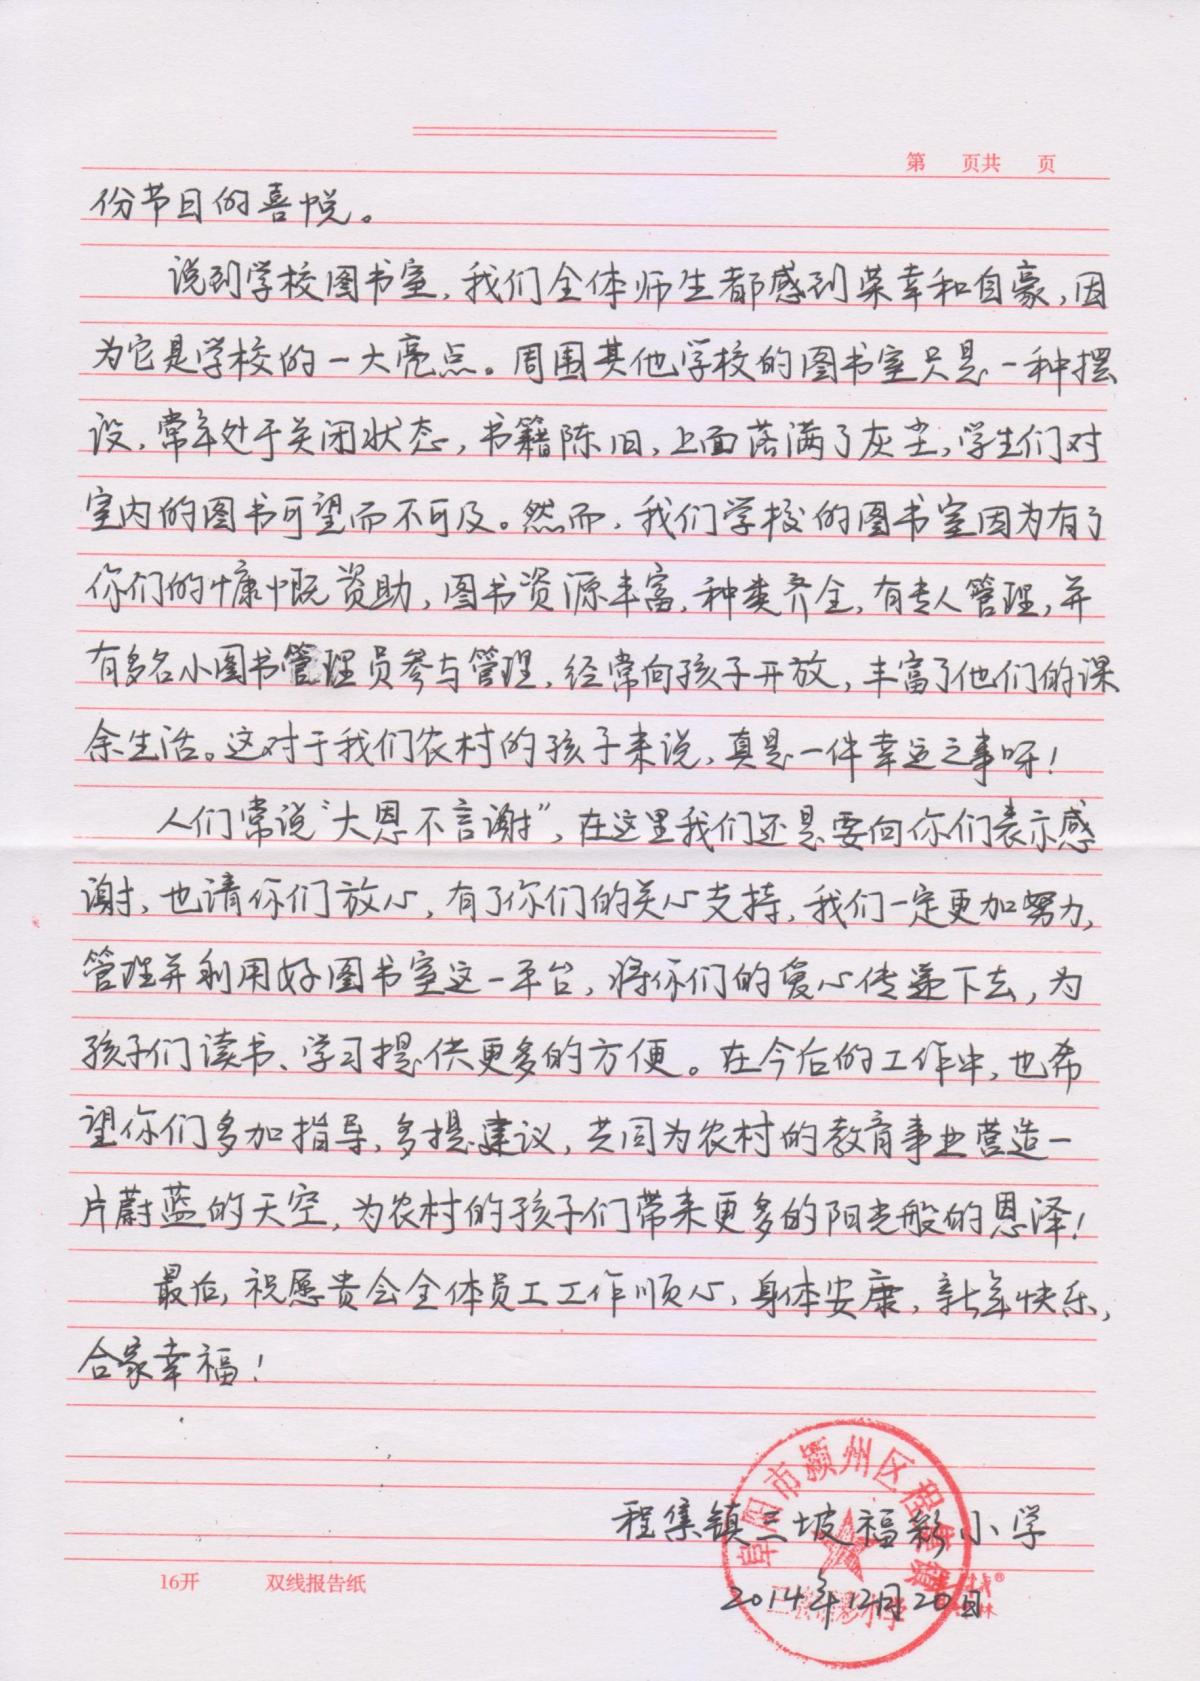 第 页共 页
份节目的喜悦。
说到学校图书室,我们全体师生都感到荣幸和自豪,因
为它是学校的一大亮点。周围其他学校的图书室只是一种摆
设,常年处于关闭状态,书籍陈旧,上面落满了灰尘,学生们对
室内的图书可望而不可及。然而,我们学校的图书室因为有了
你们的慷慨资助,图书资源丰富,种类齐全,有专人管理,并
有多名小图书管理员参与管理,经常向孩子开放,丰富了他们的课
余生活。这对于我们农村的孩子来说,真是一件幸运之事呀!
人们常说“大恩不言谢”,在这里我们还是要向你们表示感
谢,也请你们放心,有了你们的关心支持,我们一定更加努力,
管理并利用好图书室这一平台,将你们的爱心传递下去,为
孩子们读书、学习提供更多的方便。在今后的工作中,也希
望你们多加指导,多提建议,共同为农村的教育事业营造一
片蔚蓝的天空,为农村的孩子们带来更多的阳光般的恩泽!
最后,祝愿贵会全体员工工作顺心,身体安康,新年快乐,
合家幸福!
阜阳市颍州区程集镇
程集镇三坡福彩小学
2014年12月20日
16开 双线报告纸